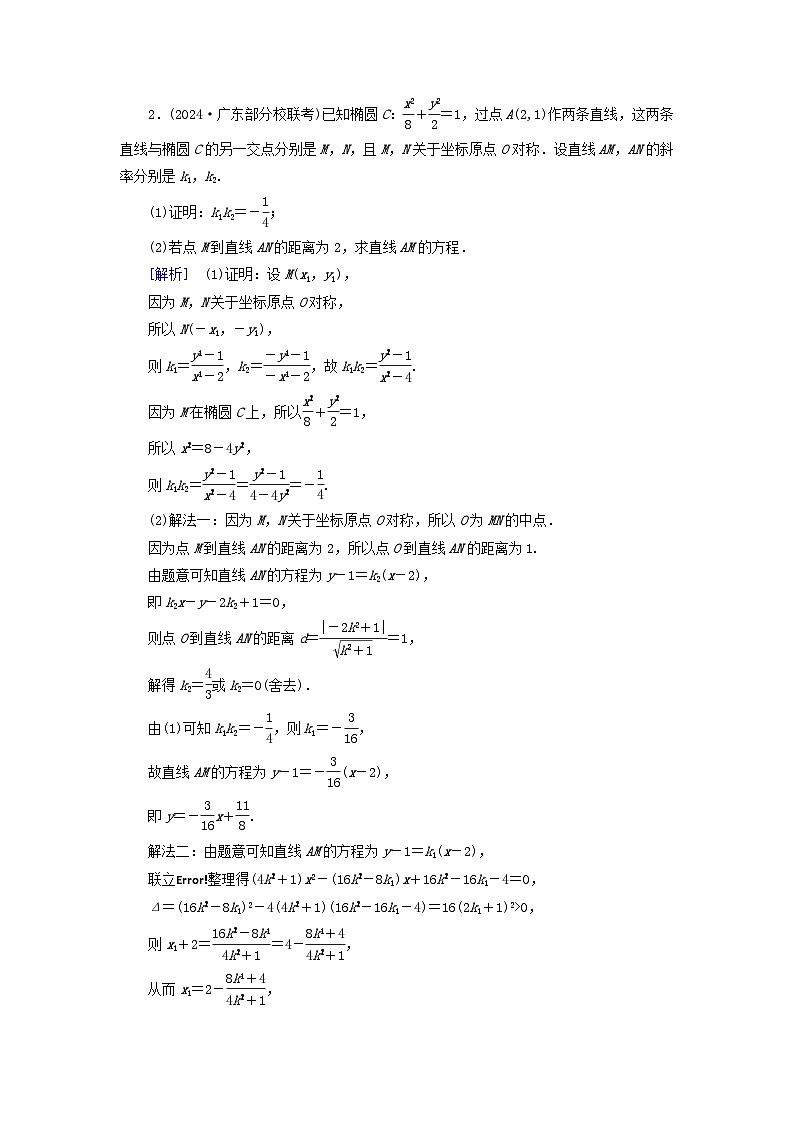 2．(2024·广东部分校联考)已知椭圆 C：x²/8＋y²/2＝1，过点 A(2,1)作两条直线，这两条
直线与椭圆 C 的另一交点分别是 M，N，且 M，N 关于坐标原点 O 对称．设直线 AM，AN 的斜
率分别是 k₁，k₂.
(1)证明：k₁k₂＝－1/4；
(2)若点 M 到直线 AN 的距离为 2，求直线 AM 的方程．
[解析] (1)证明：设 M(x₁，y₁)，
因为 M，N 关于坐标原点 O 对称，
所以 N(－x₁，－y₁)，
则 k₁＝(y¹－1)/(x¹－2)，k₂＝(－y¹－1)/(－x¹－2)，故 k₁k₂＝(y²－1)/(x²－4).
因为 M 在椭圆 C 上，所以x²/8＋y²/2＝1，
所以 x²＝8－4y²，
则 k₁k₂＝(y²－1)/(x²－4)＝(y²－1)/(4－4y²)＝－1/4.
(2)解法一：因为 M，N 关于坐标原点 O 对称，所以 O 为 MN 的中点．
因为点 M 到直线 AN 的距离为 2，所以点 O 到直线 AN 的距离为 1.
由题意可知直线 AN 的方程为 y－1＝k₂(x－2)，
即 k₂x－y－2k₂＋1＝0，
则点 O 到直线 AN 的距离 d＝|－2k²＋1|/√(k²＋1)＝1，
解得 k₂＝4/3或 k₂＝0(舍去)．
由(1)可知 k₁k₂＝－1/4，则 k₁＝－3/16，
故直线 AM 的方程为 y－1＝－3/16(x－2)，
即 y＝－3/16x＋11/8.
解法二：由题意可知直线 AM 的方程为 y－1＝k₁(x－2)，
联立Error!整理得(4k²＋1)x²－(16k²－8k₁)x＋16k²－16k₁－4＝0，
Δ＝(16k²－8k₁)²－4(4k²＋1)(16k²－16k₁－4)＝16(2k₁＋1)²>0，
则 x₁＋2＝(16k²－8k¹)/(4k²＋1)＝4－(8k¹＋4)/(4k²＋1)，
从而 x₁＝2－(8k¹＋4)/(4k²＋1)，